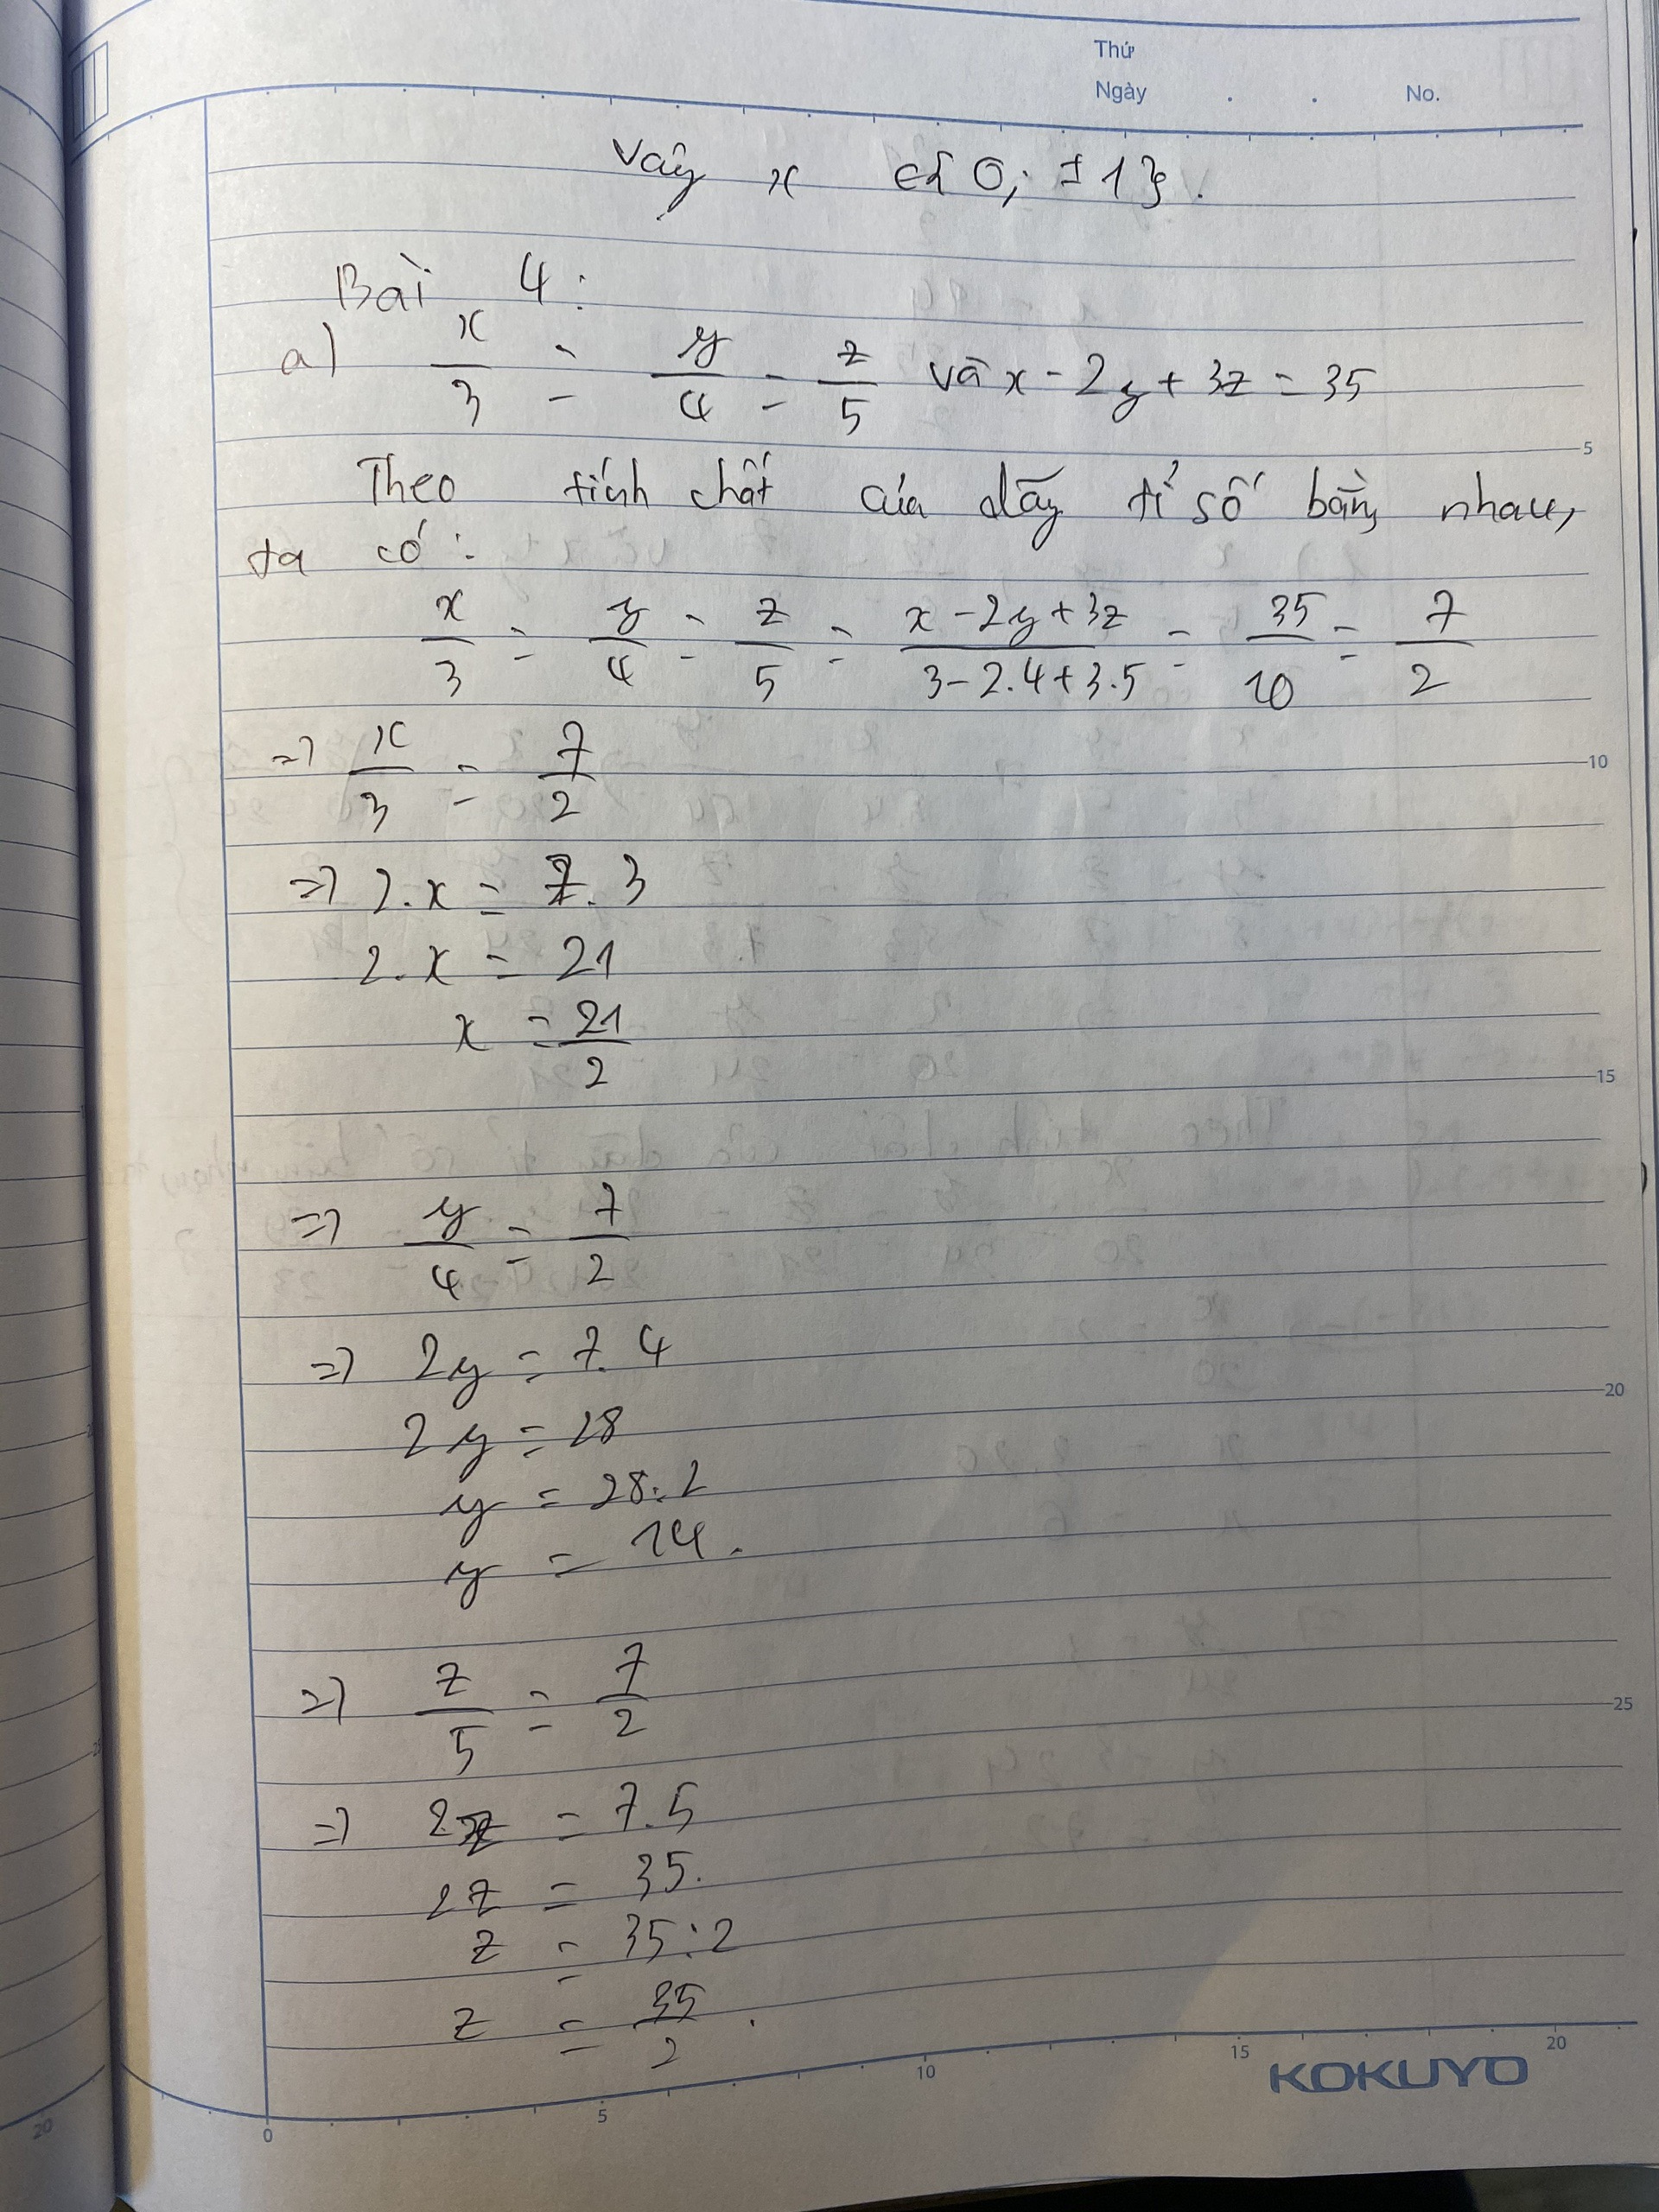 Thứ
Ngày . . No.
Vậy x ∈ { 0; ±1 }.
Bài 4:
a) x/3 = y/4 = z/5 và x - 2y + 3z = 35
Theo tính chất của dãy tỉ số bằng nhau,
ta có:
x/3 = y/4 = z/5 = (x - 2y + 3z)/(3 - 2.4 + 3.5) = 35/10 = 7/2
=> x/3 = 7/2
=> 2.x = 7.3
2.x = 21
x = 21/2
=> y/4 = 7/2
=> 2y = 7.4
2y = 28
y = 28:2
y = 14.
=> z/5 = 7/2
=> 2z = 7.5
2z = 35.
z = 35:2
z = 35/2.
5
10
15
20
25
0 5 10 15 20
KOKUYO
20